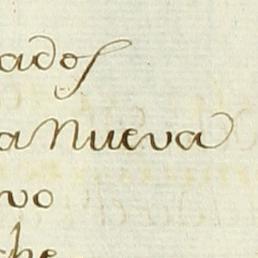 ados
a nueva
vo
che